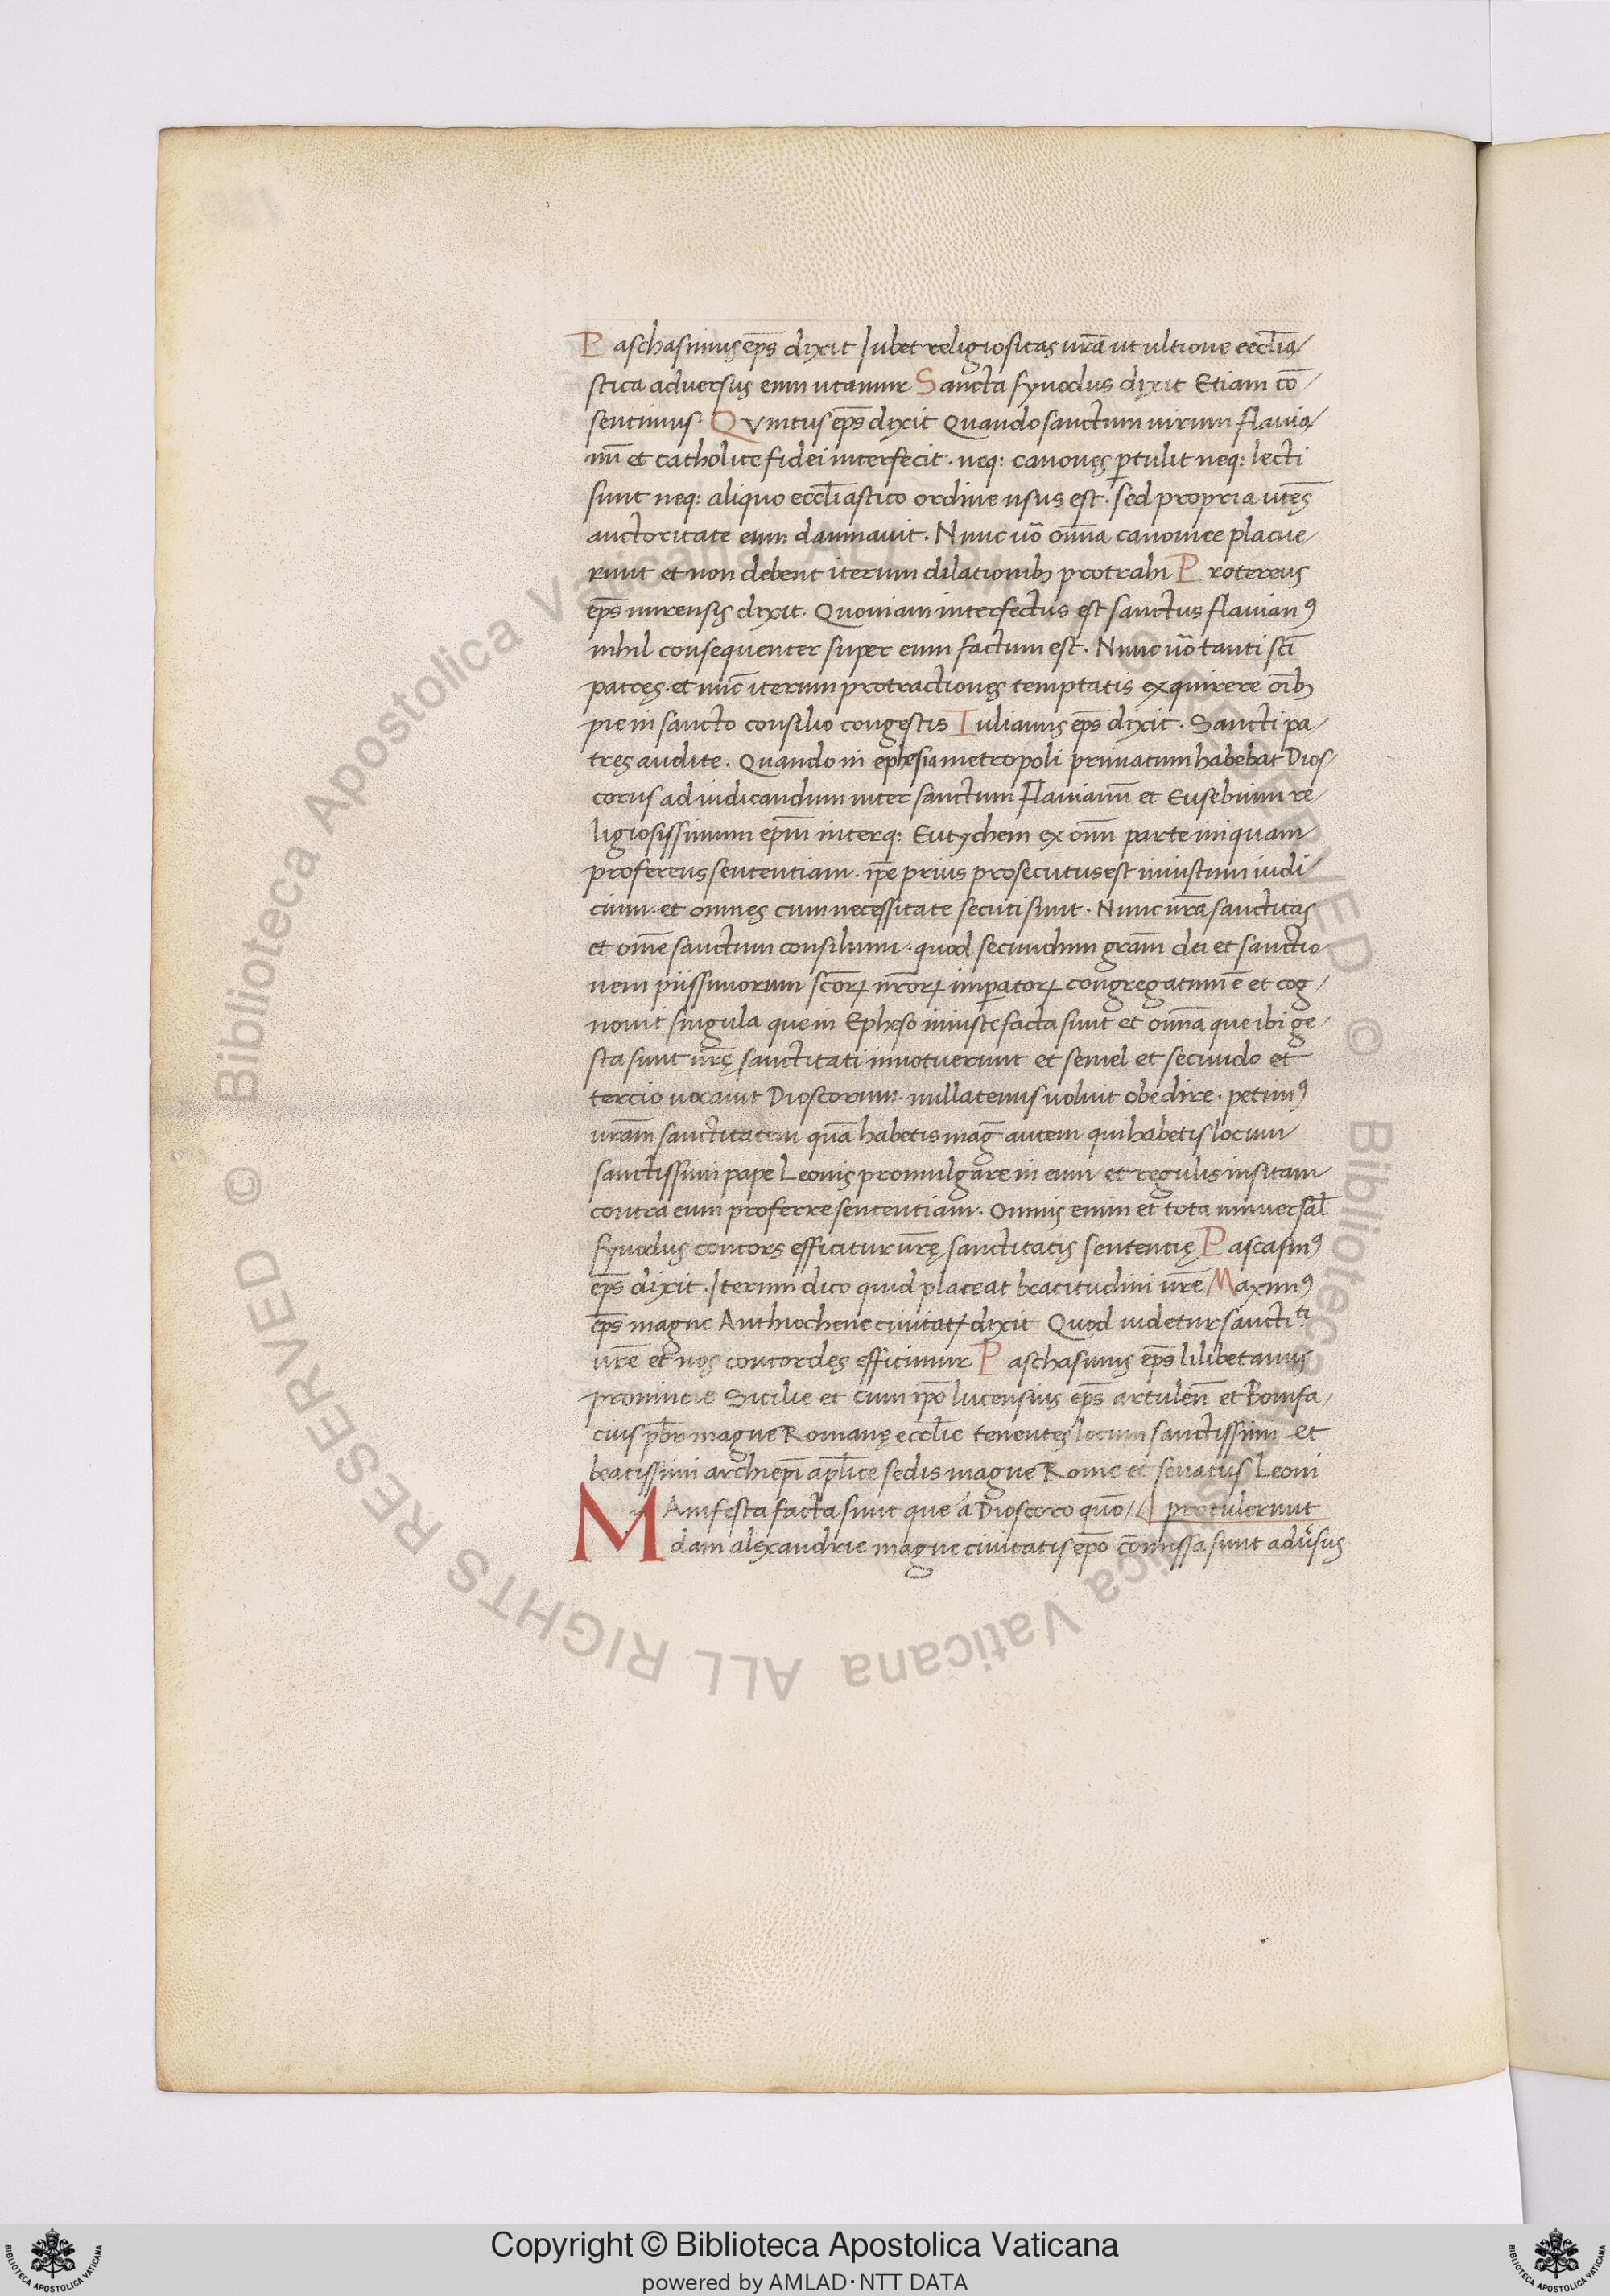 Paschasinus eps̄ dixit Iubet religiositas ur̄a ut ultione eccl̄ia/
stica adversus eum utamur Sancta synodus dixit Etiam cō/
sentimus. QVintus eps̄ dixit Quando sanctum uirum flauia/
nū et catholice fidei interfecit. neq: canones ꝑtulit neq: lecti
sunt neq: aliquo eccl̄iastico ordine usus est. sed propria utēs
auctoritate eum damnauit. Nunc uō om̄a canonice placue/
runt et non debent iterum dilationibꝫ protrahi Protereus
eps̄ mirensis dixit. Quoniam interfectus est sanctus flauianꝰ
nihil consequenter super eum factum est. Nunc uō tanti scī
patres. et nūc iterum protractiones temptatis exquirere oībꝫ
pie in sancto consilio congestis Iulianus eps̄ dixit. Sancti pa/
tres audite. Quando in ephesia metropoli primatum habebat Dios/
corus ad iudicandum inter sanctum flauianū et Eusebium re/
ligiosissimum epm̄ interq: Eutychem ex om̄i parte iniquam
proferens sententiam. ip̄e prius prosecutus est iniustum iudi/
cium. et omnes cum necessitate secuti sunt. Nunc ur̄a sanctitas
et om̄e sanctum consilium. quod secundum gram̄ dei et sanctio
nem piissimorum scōꝝ nr̄oꝝ imperatoꝝ congregatum ē et cog/
nouit singula que in Epheso iniuste facta sunt et om̄a que ibi ge/
sta sunt ur̄ę sanctitati innotuerunt et semel et secundo et
tercio uocauit Dioscorum. nullatenus uoluit obedire. petimꝰ
uram̄ sanctitatem quā habetis maḡ autem qui habetis locum
sanctissimi pape Leonis promulgare in eum et regulis insitam
contra eum proferre sententiam. Omnis enim et tota uniuersal̄
synodus concors efficitur ur̄ę sanctitatis sententię Pascasinꝰ
eps̄ dixit. Iterum dico quid placeat beatitudini ur̄e Maximꝰ
eps̄ magne Anthiochene ciuitatꝭ dixit Quod uidetur sanctiti
ur̄e et nos concordes efficimur Paschasinus eps̄ lilibetanus
prouincie Sicilie et cum ip̄o lucensius eps̄ artulen̄ et Bonifa/
cius pb̄r magne Romanę eccl̄ie tenentes locum sanctissimi et
beatissimi archiep̄i apl̄ice sedis magne Rome et senatus Leoni
MAnifesta facta sunt que á Dioscoro quō/ protulerunt
dam alexandrie magne ciuitatis ep̄o cōmissa sunt adūsus
Copyright © Biblioteca Apostolica Vaticana
powered by AMLAD·NTT DATA